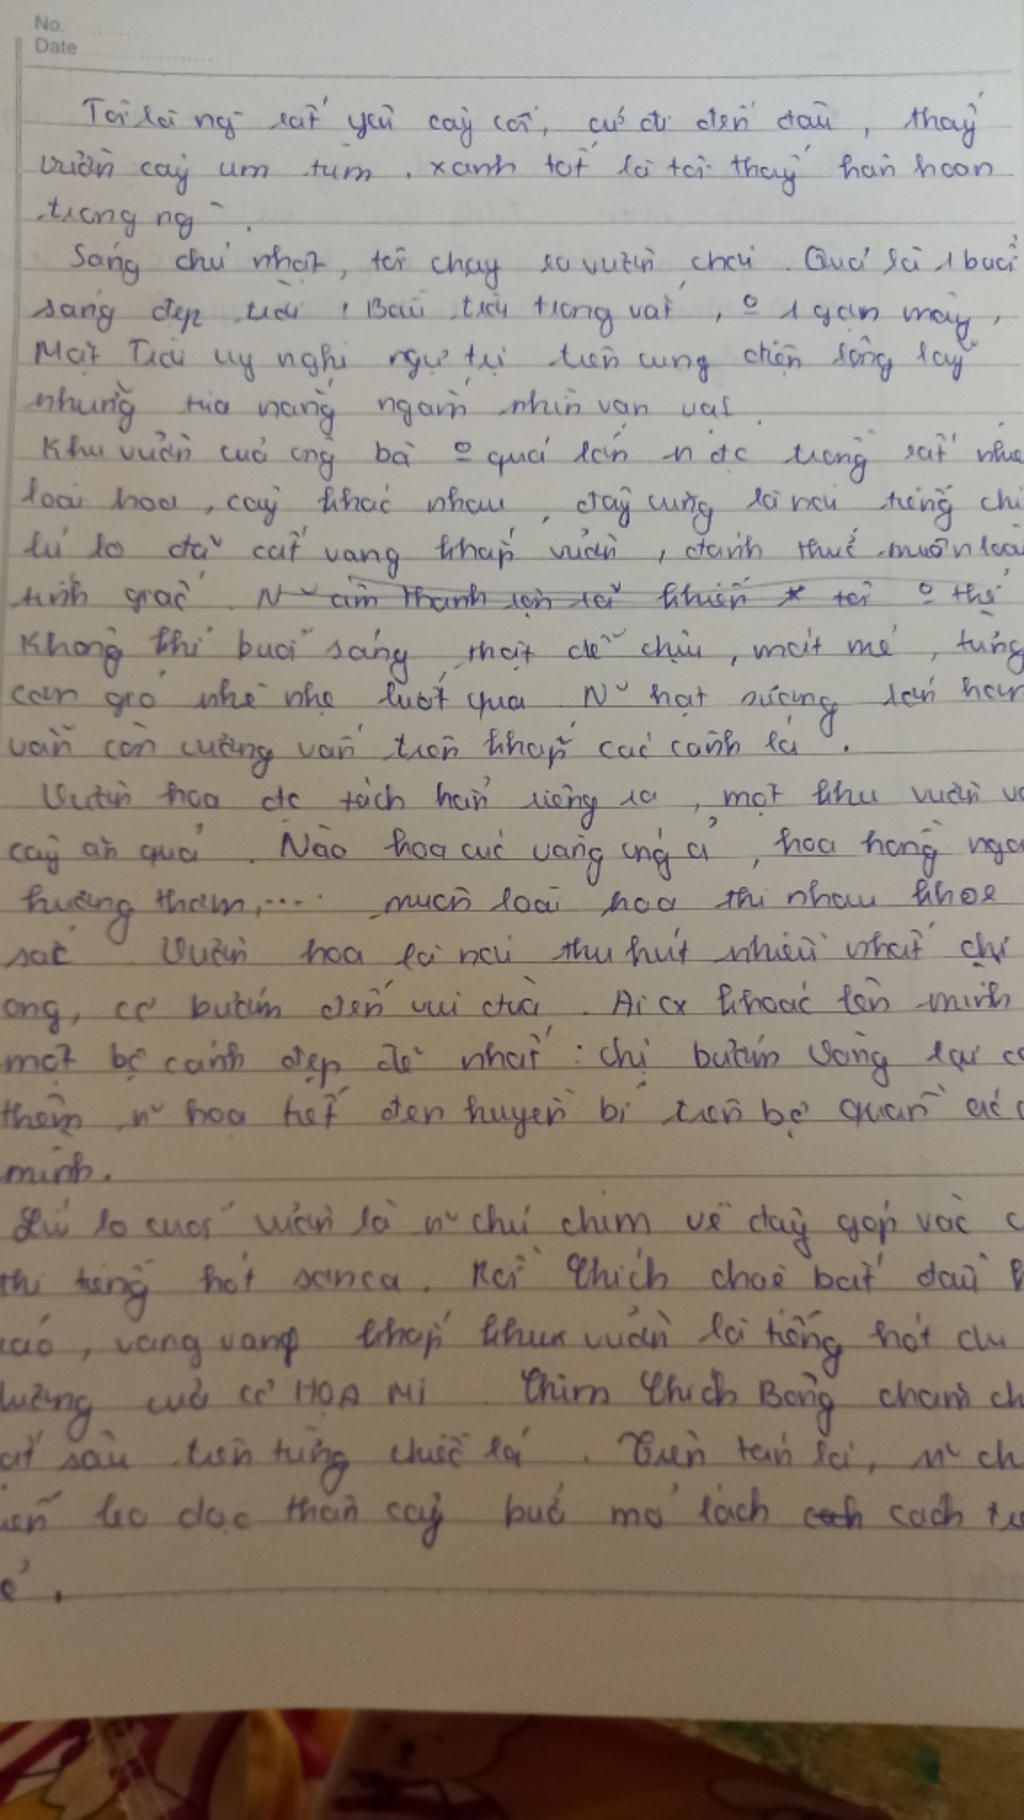 No. ........
Date ................
Tôi là ng~ rất yêu cây cối, cứ đi đến đâu, thấy
vườn cây um tùm, xanh tốt là tôi thấy hân hoan
trong ng~.
Sáng chủ nhật, tôi chạy ra vườn chơi. Quả là 1 buổi
sáng đẹp trời! Bầu trời trong vắt, º 1 gợn mây,
Mặt Trời uy nghi ngự trị trên cung điện lộng lẫy
những tia nắng ngắm nhìn vạn vật.
Khu vườn của ông bà º quá lớn n đc trồng rất nhiều
loài hoa, cây khác nhau, đây cũng là nơi tiếng chi
líu lo đã cất vang khắp vườn, đánh thức muôn loài
tỉnh giấc. N~ âm thanh rộn rã khiến tôi º thể
Không khí buổi sáng thật dễ chịu, mát mẻ, từng
cơn gió nhè nhẹ lướt qua N~ hạt sương long
vẫn còn vương vấn trên khắp các cành lá.
Vườn hoa đc tách hẳn riêng ra, một khu vườn
cây ăn quả. Nào hoa cúc vàng óng ả, hoa hồng
hương thơm,.... muôn loài hoa thi nhau khoe
sắc Vườn hoa là nơi thu hút nhiều nhất chị
ong, cô bướm đến vui đùa. Ai cx khoác lên mình
một bộ cánh đẹp đẽ nhất: chị bướm Vàng lại
thêm n~ họa tiết đen huyền bí trên bộ quần áo
mình.
Líu lo suốt vườn là n~ chú chim về đây góp vào
thi tiếng hót sanca. Rồi Chích choè bắt đầu
cáo, vang vang khắp khu vườn là tiếng hót du
dương của cô HỌA Mi Chim Chích Bông chăm ch
ắt sâu trên từng chiếc lá. Trên tán lá, n~ ch
iến leo dọc thân cây buổi mổ lách cách
ẻ.